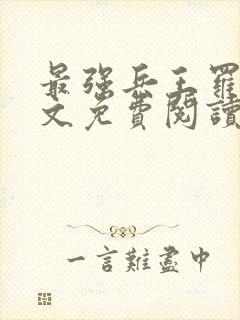 最強兵王羅
文免費閱讀
一言難盡中